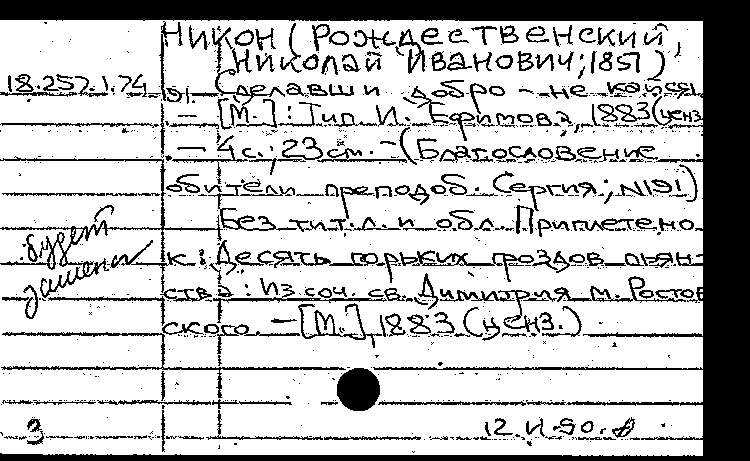 НИКОН (РОЖДЕСТВЕНСКИЙ,
НИКОЛАЙ ИВАНОВИЧ; 1851)
18.257.1.74
Сделавши добро - не кайся
— [М.]: Тип. И. Ефимова, 1883 (ценз
. — 4 с.; 23 см. — (Благословение
обители преподоб. Сергия; N191)
Без тит. л. и обл. Приплетено
к: Десять горьких гроздов пьян-
ства: Из соч. св. Димитрия м. Ростов
ского. — [М.], 1883 (ценз.)
будет
замена
3
12.VI.90.